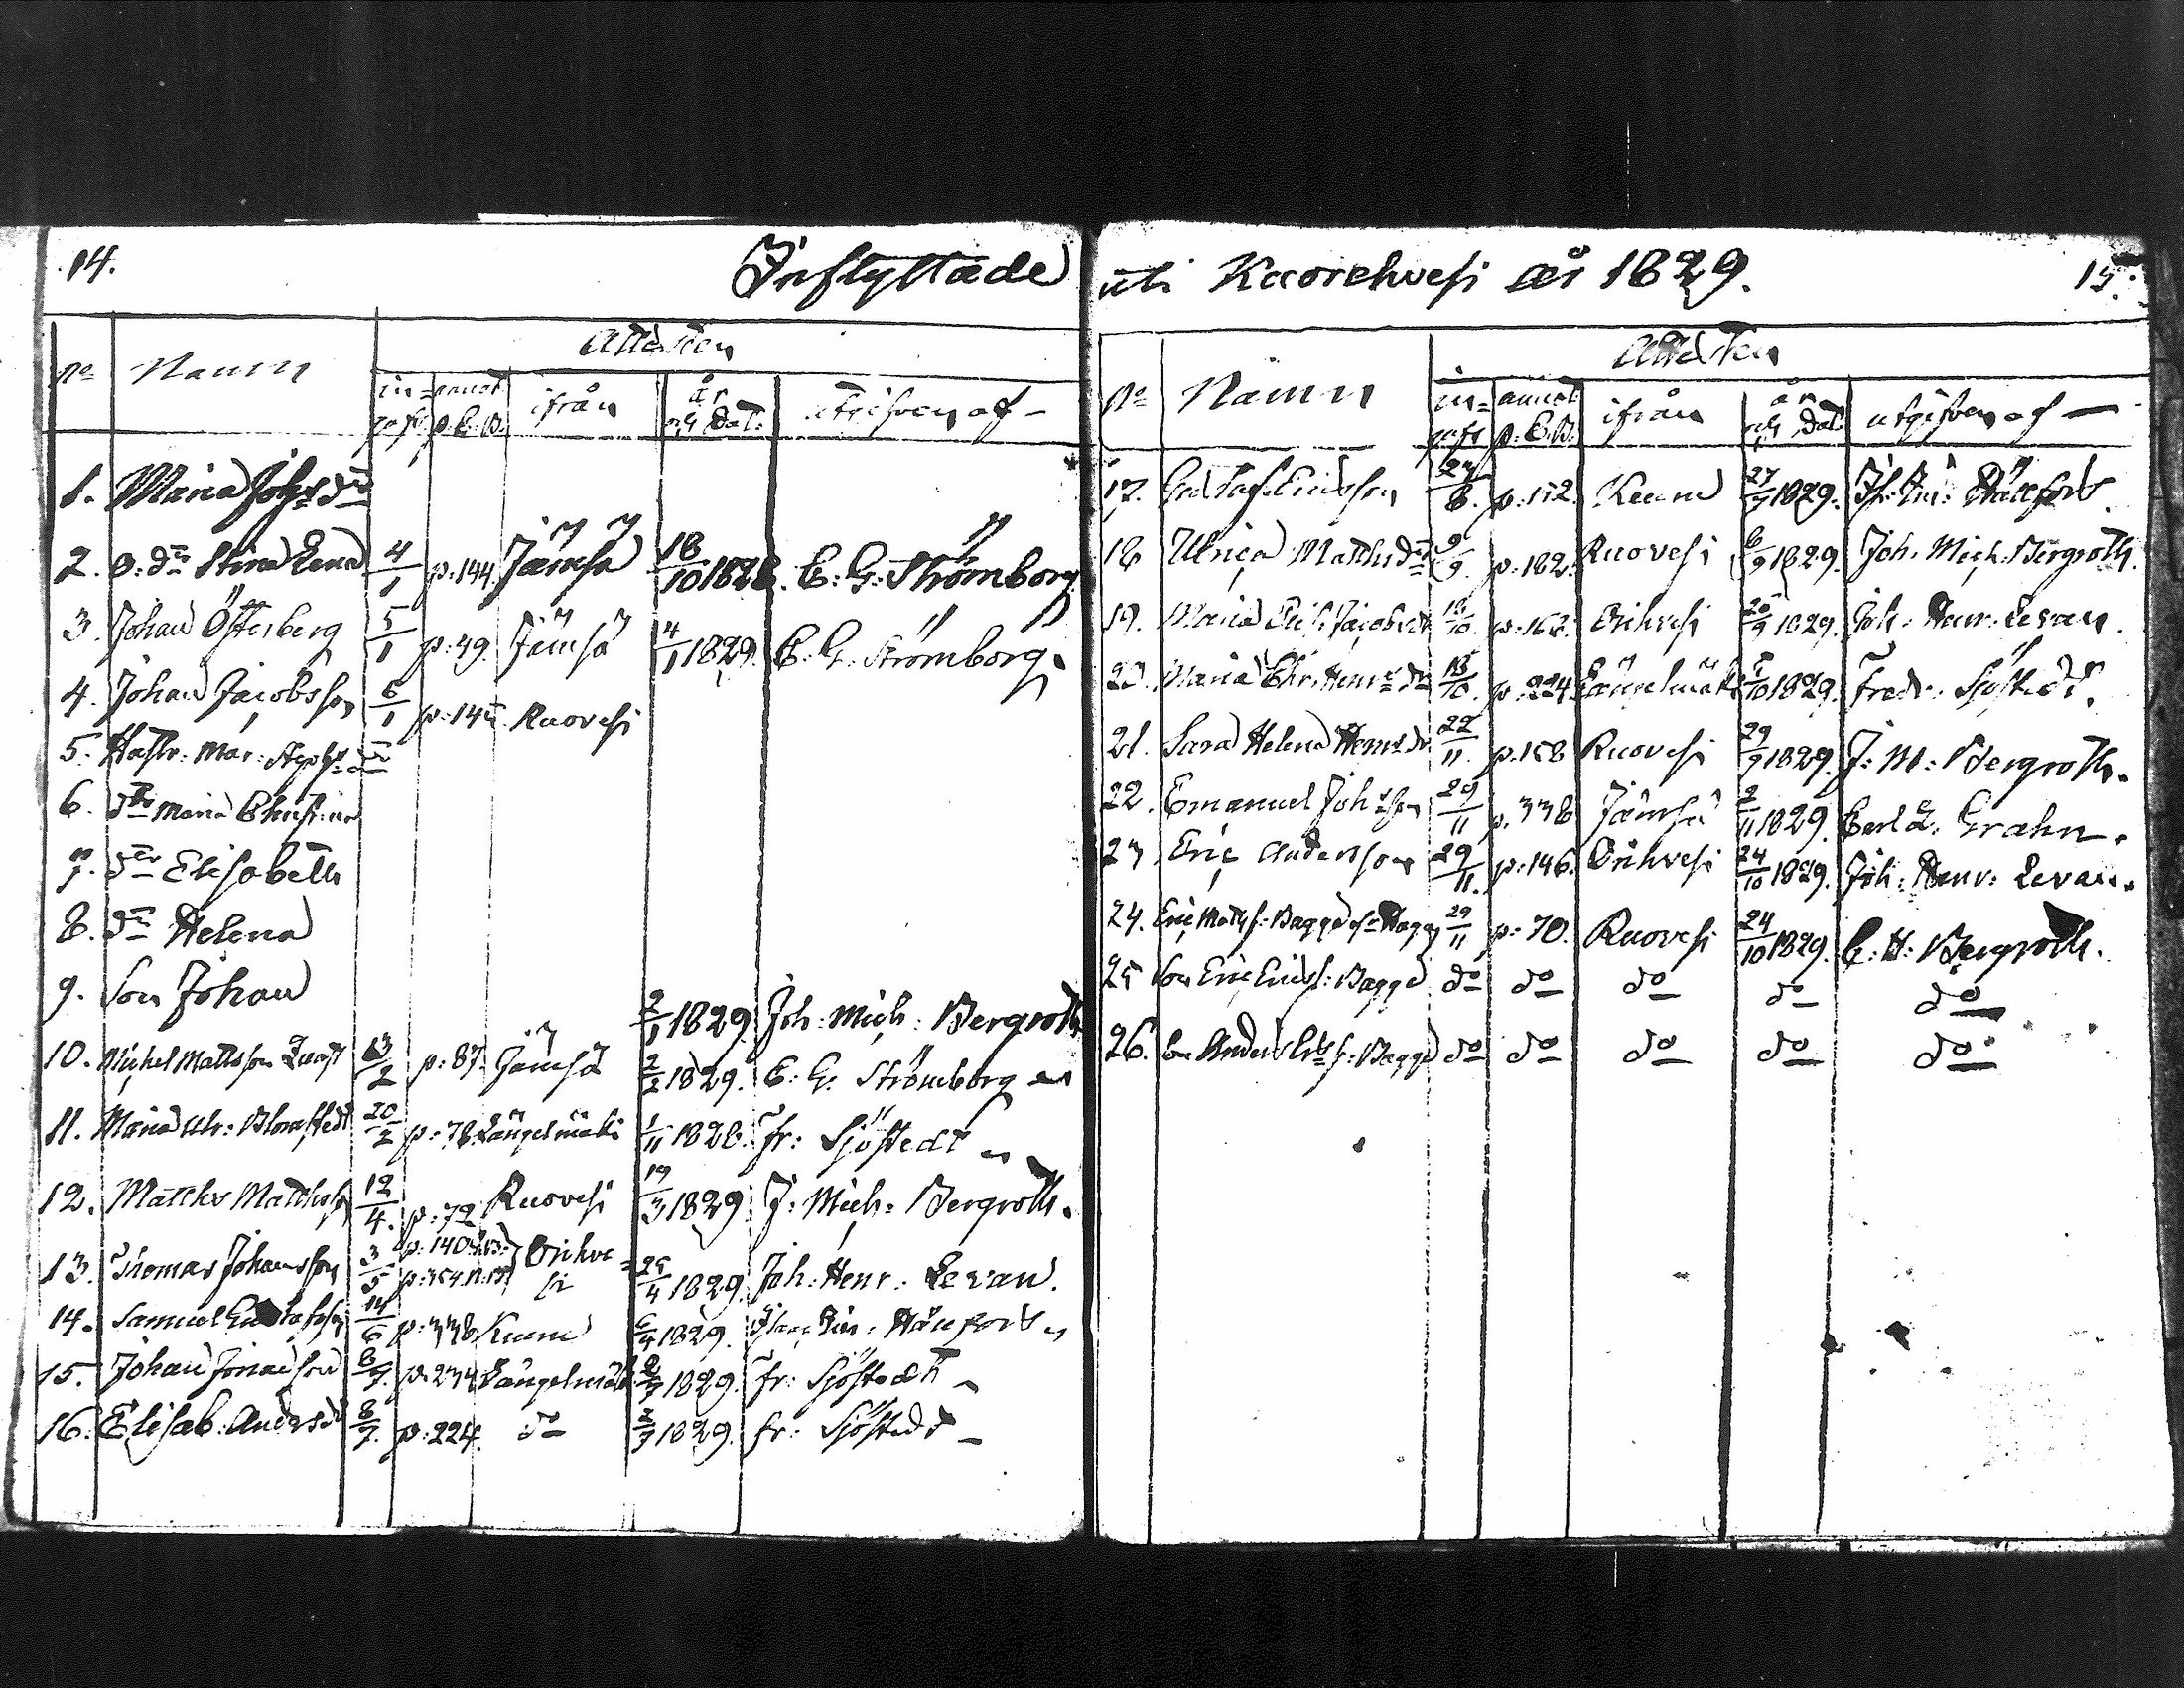 14.
Inflyttade
No Namn
Attesten
in= annot ifrån år utgifven af —
gafs p. C. B. och Dat:
1. Maria Johsdr
2. D:dr Stina Lena 4/1 p:144. Jämsä 18/10 1828. C: G: Strömborg
3. Johan Österberg 5/1 p:49. Jämsä 4/1 1829. C. G. Strömborg.
4. Johan Jacobsson 6/1 Ruovesi
5. Hustr: Mar:
6. dr Maria Christina
7. dr Elisabeth
8. dr Helena
9. Son Johan 2/1 1829. Joh: Mich: Bergroth
10. Michel Mattsson 13/2 p:87. Jämsä 2/2 1829. C: G. Strömborg
11. Maria Ulr: Blomstedt 20/2 p:78. Längelmäki 1/11 1828. Fr: Sjöstedt
12. Matths Matthsson 12/4. p:72 Ruovesi 19/3 1829. J: Mich: Bergroth.
13. Thomas Johansson 3/5 p:140 Orihve=
si 25/4 1829. Joh: Henr: Levan.
14. Samuel Gustafsson 14/6 p:338 Kumo 6/4 1829.
15. Johan Jonasson 8/7. p:234 Längelmäki 1829. Fr: Sjöstedt
16. Elisab: Andersdr 8/7. p:224. do 1829. Fr: Sjöstedt
uti Kuorehvesi år 1829.
15.
No Namn
Attesten
in= annot ifrån år utgifven af —
gafs p: C. B. och Dat
17. Gustaf Ericsson p:152. Kumo 27/7 1829.
18 Ulrica Matthsdr 9/9. p:182. Ruovesi 6/9 1829. Joh. Mich. Bergroth.
19. Maria Jacobsdr Orihvesi 20/9 1829. Joh. Henr. Levan.
20. Maria Chr. Henrsdr 18/10. p:224. Längelmäki 1829. Fredr: Sjöstedt.
21. Sara Helena Henrsdr 22/11. p:158 Ruovesi 29/9 1829. J: M: Bergroth.
22. Emanuel Johsson 29/11 p.338 Jämsä 2/11 1829. Carl L. Grahn.
23. Eric Andersson 29/11. p:146. Orihvesi 24/10 1829. Joh: Henr: Levan.
24. Eric Matthss: Bagge 29/11 p: 70. Ruovesi 24/10 1829. C: H: Bergroth.
25 Son Eric Ericss: Bagge do do do do do
26. Son Anders Ers s: Bagge do do do do do